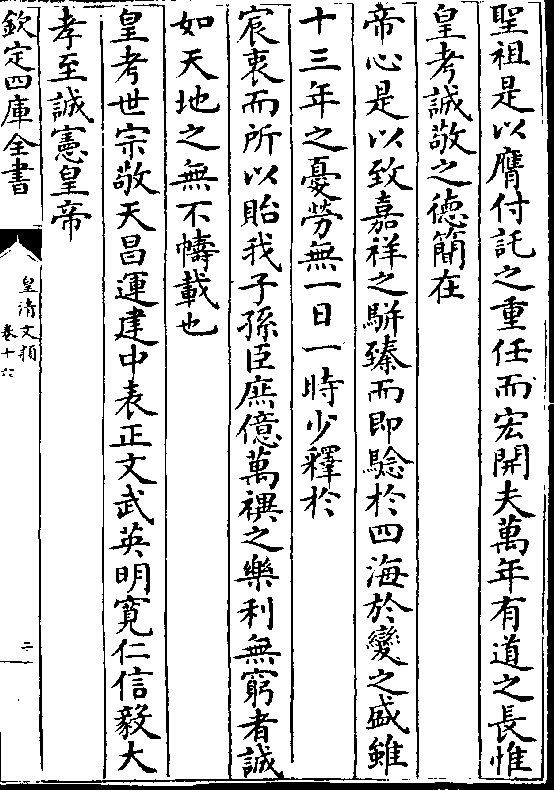 聖祖是以膺付託之重任而宏開夫萬年有道之長惟
皇考誠敬之德簡在
帝心是以致嘉祥之駢臻而即驗於四海於變之盛雖
十三年之憂勞無一日一時少釋於
宸衷而所以貽我子孫臣庶億萬禩之樂利無窮者誠
如天地之無不幬載也
皇考世宗敬天昌運建中表正文武英明寛仁信毅大
孝至誠憲皇帝
欽定四庫全書
皇清文頴
卷十六
二